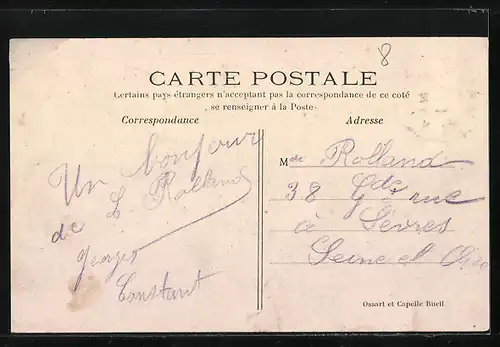 8
CARTE POSTALE
Certains pays étrangers n'acceptant pas la correspondance de ce coté
, se renseigner à la Poste)
Correspondance
Adresse
Un bonjour
de L Rolland
Georges
Constant
Mde Rolland
38 Gde rue
à Sèvres
Seine et Oise
Ossart et Capelle Bueil